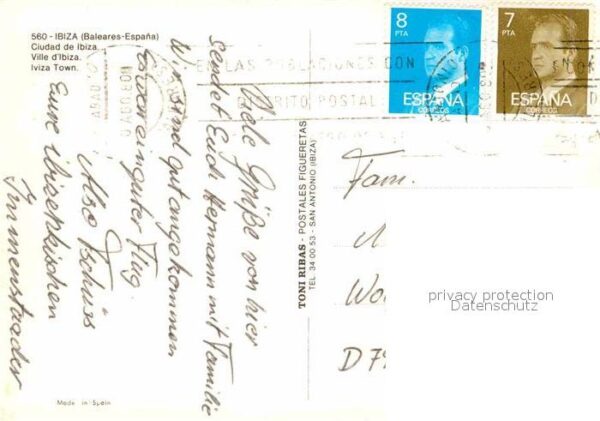 560 - IBIZA (Baleares-España)
Ciudad de Ibiza.
Ville d'Ibiza.
Iviza Town.
8
PTA
ESPAÑA
CORREOS
7
PTA
ESPAÑA
CORREOS
EN LAS POBLACIONES CON
DISTRITO POSTAL
Viele Grüße von hier
sendet Euch Hermann mit Familie
Wir sind gut angekommen
es war ein guter Flug.
Also Tschüss
Eure Ibizenkischen
Immenstaader
TONI RIBAS - POSTALES FIGUERETAS
TEL. 34 00 53 - SAN ANTONIO (IBIZA)
Fam.
D 79
privacy protection
Datenschutz
Made in Spain